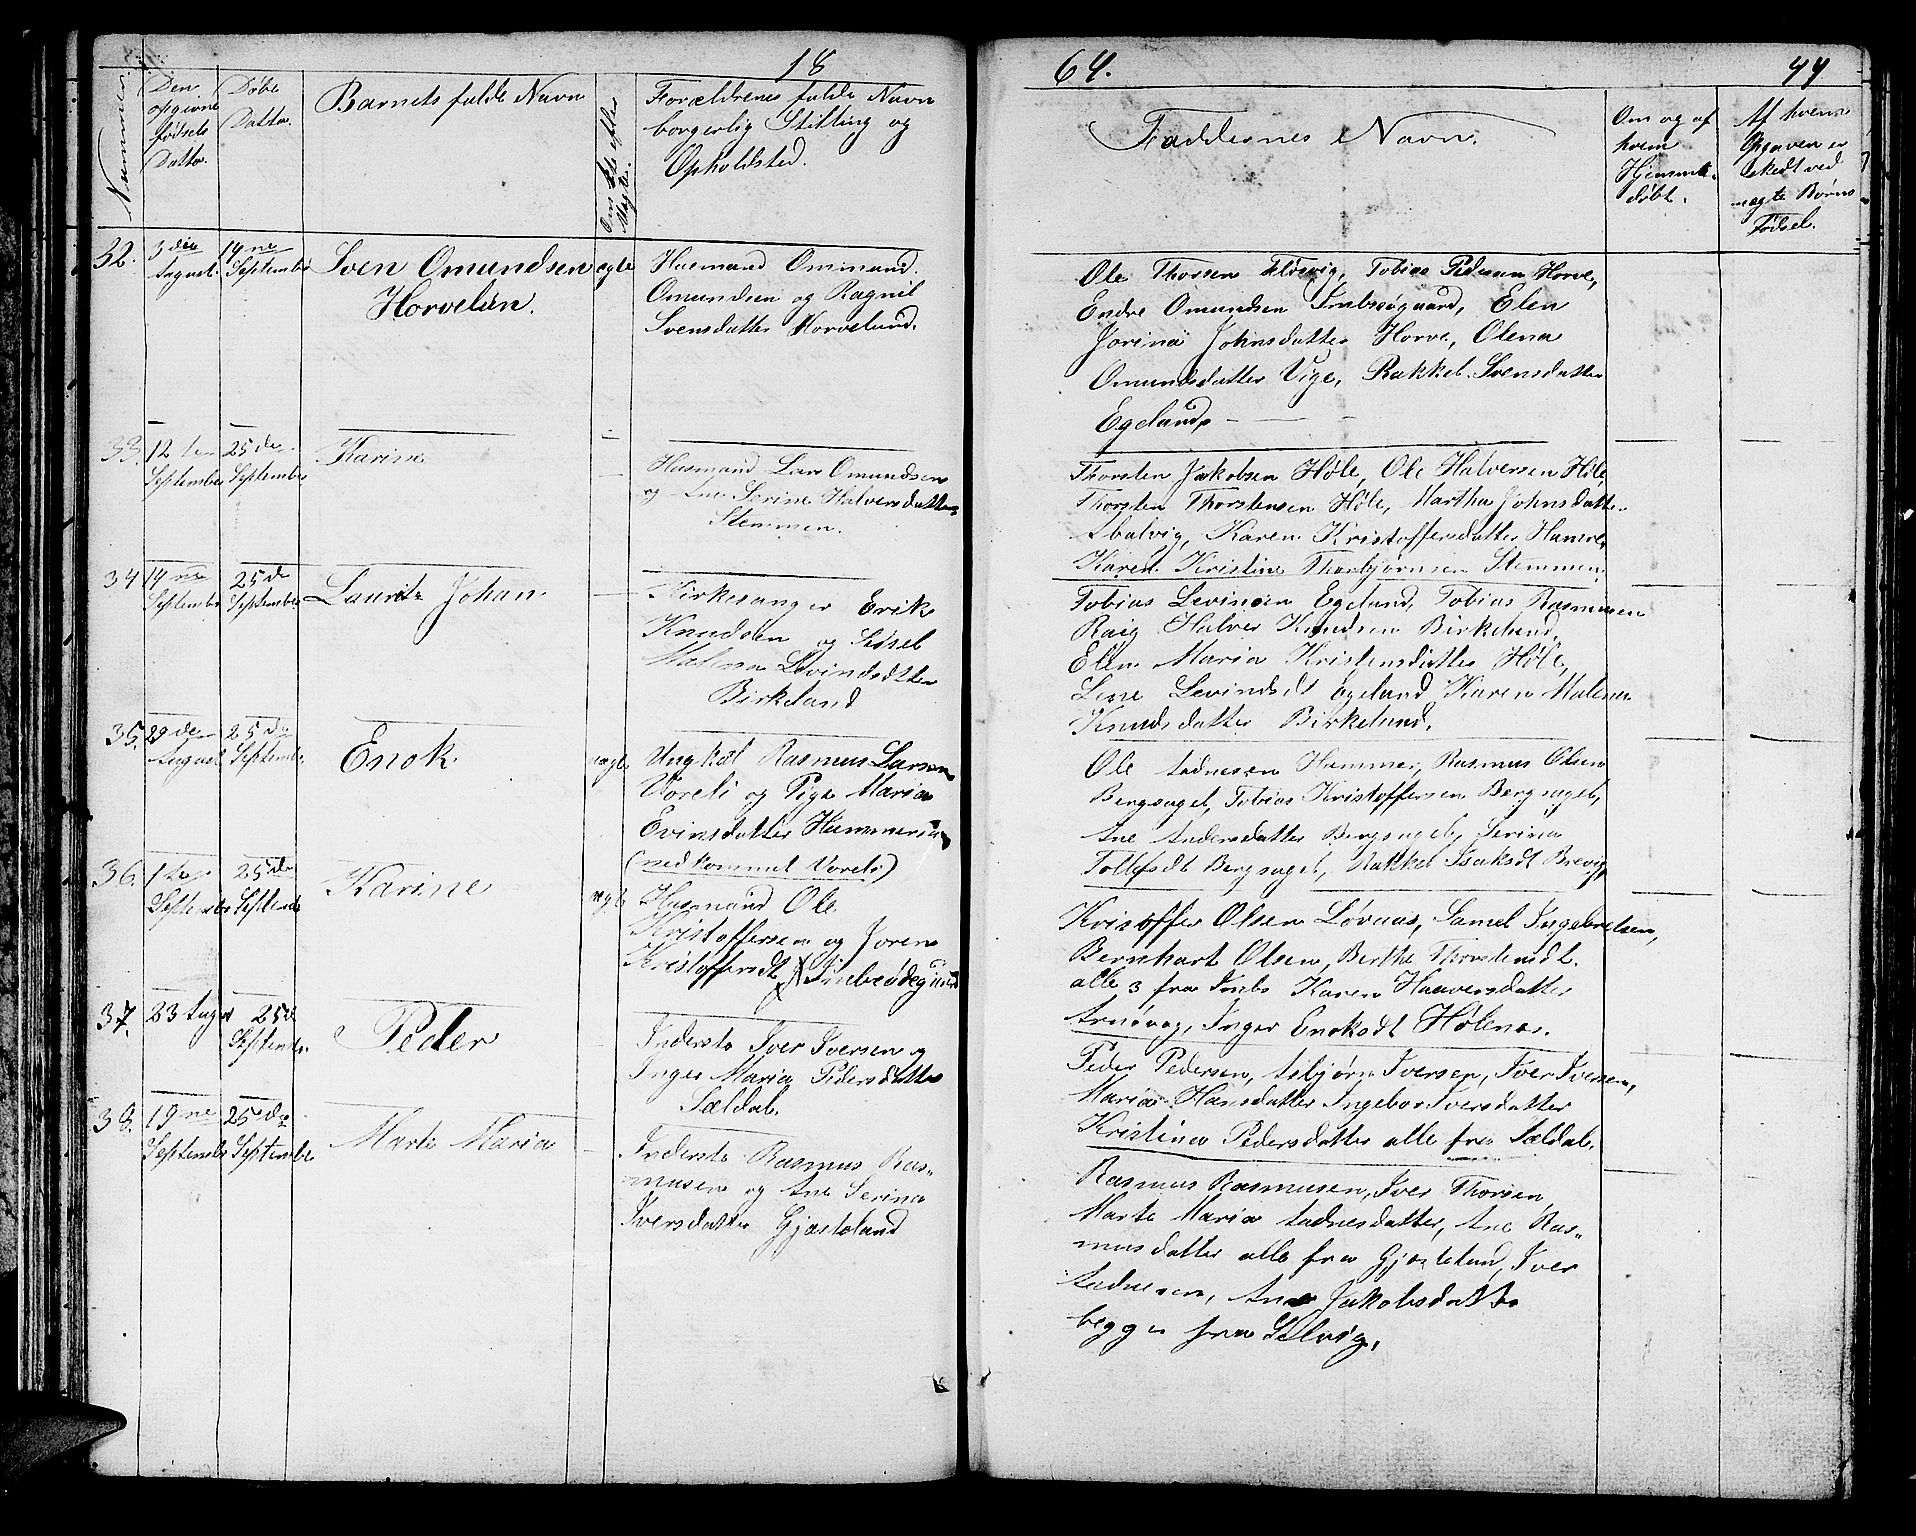 18
64.
44
Nummer
Den opgivne fødsels Datto.
Døbe Datto.
Barnets fulde Navn
Om ægte eller Uægte.
Forældrenes fulde Navn
borgerlig Stilling og
Opholdsted.
Faddernes Navn.
Om og af
hvem
Hjemme-
døbt.
Af hvem
Opgaven er
skedt ved
uægte Børns
Fødsel.
32.
3die August
14ne Septembe
Sven Omundsen
Horvelan.
ægte
Husmand Ommund.
Omundsen og Ragnil
Svensdatter Horvelund.
Ole Thorsen Flørvig, Tobias Pedersen Horve,
Endre Omundsen Imbsøgaard, Elen
Jorina Johnsdatter Horve, Olena
Omundsdatter Vige, Rakkel Svensdatter
Egeland
33.
12te September
25de September
Karine
Husmand Lars Omundsen
og Ane Serine Halversdatter
Stemmen.
Thorsten Jakobsen Høle, Ole Halversen Høle
Thorsten Thorstensen Høle, Martha Johnsdatter
Karen Kristoffersdatter Hamre,
Karen Kristine Thorbjørnsen Stemmen.
34
14ne September
25de September
Lauritz Johan
Kirkesanger Erik
Knudsen og Sissel
Malena Levindsdtter
Birkeland
Tobias Levinsen Egeland, Tobias Rasmusen
Raig Halver Knudsen Birkeland,
Elen Maria Kristensdatter Høle,
Lene Levindsdt Egeland, Karen Malena
Knudsdatter Birkelund.
35.
29de August
25de Septembe.
Enok
uægte
Ungkal Rasmus Larsen
Voreli og Pige Maria
Evinsdatter Hammersen
(nedkommet Voreli)
Ole Aadnesen Hammer, Rasmus Olsen
Bergsaget, Tobias Kristoffersen Bergsaget,
Ane Andersdatter Bergsagel, Serina
Tollefsdt Bergsaget, Rakkel Isaksdt Brevig,
36.
1te September
25de Septembe
Karine
ægte
Husmand Ole
Kristoffersen og Joren
Kristoffersdt
Kristoffer Olsen Løvaas, Samel Ingebretsen,
Bernhart Olsen, Berthe Thorstensdt.
alle 3 fra Imbs Karen Haaversdatter
Arnøvag, Inger Enoksdt Hølenæs.
37.
23 August
25de Septembe.
Peder
Inderste Iver Iversen og
Inger Maria Pedersdatter
Sældal.
Peder Pedersen, Asbjørn Iversen, Iver Iversen,
Maria Hansdatter Ingebor Iversdatter
Kristina Pedersdatter alle fra Sældal.
38.
19ne September
25de September
Marte Maria
Inderste Rasmus Ras-
musen og Ane Serina
Iversdatter Gjæsteland
Rasmus Rasmusen, Iver Thorsen
Marte Maria Aadnesdatter, Ane Ras-
musdatter alle fra Gjæsteland, Iver
Aadnesen, Ane Jakobsdatter
begge fra Selvig.